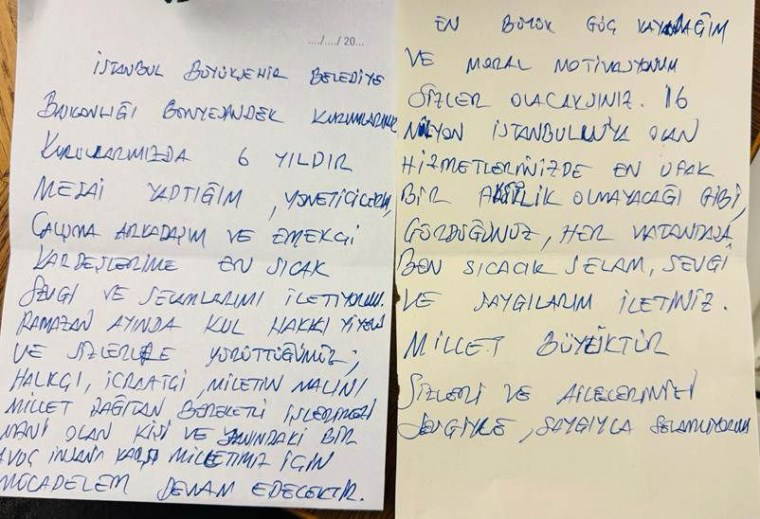 ..../..../ 20....
İSTANBUL BÜYÜKŞEHİR BELEDİYE
BAŞKANLIĞI BÜNYESİNDEK KURUMLARIMIZ
KURULLARIMIZDA 6 YILDIR
MESAİ YAPTIĞIM, YÖNETİCİLERİM,
ÇALIŞMA ARKADAŞIM VE EMEKÇİ
KARDEŞLERİME EN SICAK
SEVGİ VE SELAMLARIMI İLETİYORUM.
RAMAZAN AYINDA KUL HAKKI YİYEN
VE SİZLERLE YÜRÜTTÜĞÜMÜZ;
HALKÇI, İCRAATÇI, MİLETİN MALINI
MİLLET DAĞITAN BEREKETLİ İŞLERİMİZİ
MANİ OLAN KİŞİ VE YANINDAKİ BİR
AVUÇ İNSAN KARŞI MİLLETİMİZ İÇİN
MÜCADELEM DEVAM EDECEKTİR.
EN BÜYÜK GÜÇ KAYNAĞIM
VE MORAL MOTİVASYONUM
SİZLER OLACAKSINIZ. 16
MİLYON İSTANBULLUN'YA OLAN
HİZMETLERİNİZDE EN UFAK
BİR OLMAYACAĞI GİBİ,
GÖRDÜĞÜNÜZ, HER VATANDAŞA
BEN SICACIK SELAM, SEVGİ
VE SAYGILARIM İLETİNİZ.
MİLLET BÜYÜKTÜR
SİZLERİ VE AİLELERİNİZİ
SEVGİYLE, SAYGIYLA SELAMLIYORUM